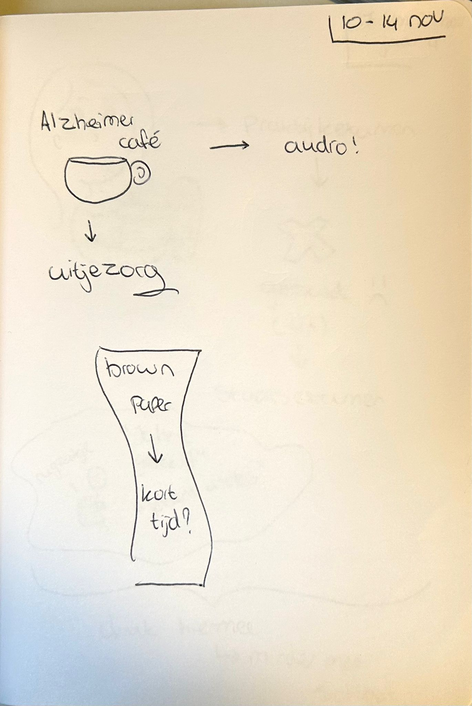 10-14 nov
Alzheimer
café
→ audro!
↓
uitjezorg
brown
paper
↓
kort
tijd?